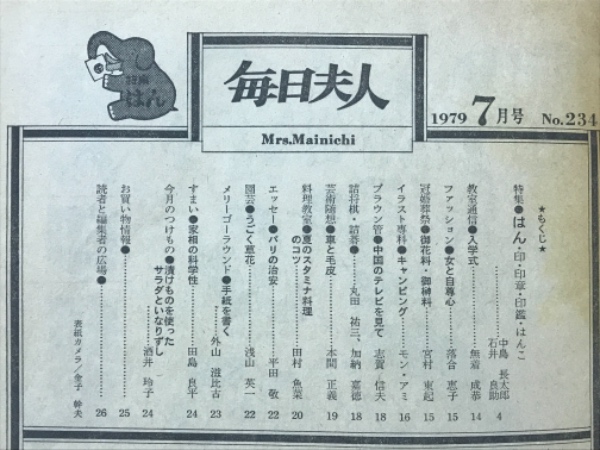 特集
はん
毎日夫人
Mrs.Mainichi
1979 7月号 No.234
★もくじ★
特集●はん・印・印章・印鑑・はんこ……中島 長太郎 石井 良助 4
教室通信●入学式……無着 成恭 14
ファッション●女と自尊心……落合 恵子 15
冠婚葬祭●御花料・御榊料……宮村 東起 15
イラスト専科●キャンピング……モン・アミ 16
ブラウン管●中国のテレビを見て……志賀 信夫 18
詰将棋・詰碁●……丸田 祐三、加納 嘉徳 18
芸術随想●車と毛皮……本間 正義 19
料理教室●夏のスタミナ料理のコツ……田村 魚菜 20
エッセー●パリの治安……平田 敬 22
園芸●うごく草花……浅山 英一 22
メリーゴーラウンド●手紙を書く……外山 滋比古 23
すまい●家相の科学性……田島 良平 24
今月のつけもの●漬けものを使ったサラダといなりずし……酒井 玲子 24
お買い物情報●……25
読者と編集者の広場●……26
表紙カメラ／金子 幹夫